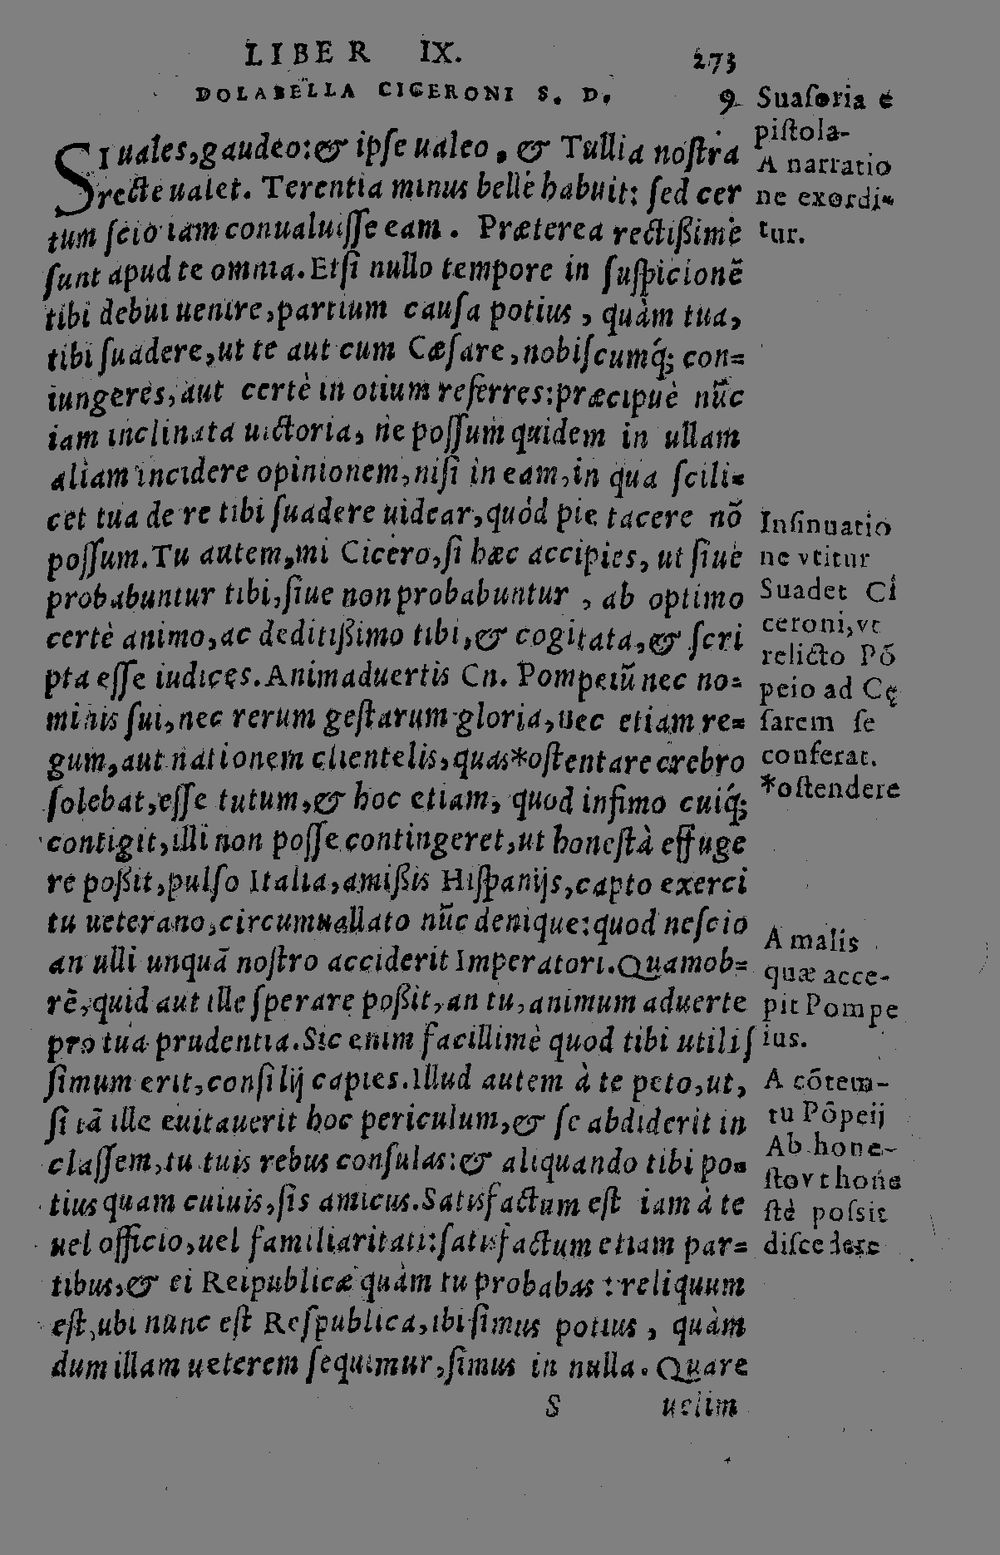 LIBER IX. 273
DOLABELLA CICERONI S. D. 9
SI uales, gaudeo: & ipse ualeo, & Tullia nostra
recte ualet. Terentia minus bellè habuit: sed cer
tum scio iam conualuisse eam. Præterea rectißimè
sunt apud te omnia. Etsi nullo tempore in suspicionē
tibi debui uenire, partium causa potius, quàm tua,
tibi suadere, ut te aut cum Cæsare, nobiscumq́; con=
iungeres, aut certè in otium referres: præcipuè nūc
iam inclinata uictoria, ne possum quidem in ullam
aliam incidere opinionem, nisi in eam, in qua scili=
cet tua de re tibi suadere uidear, quòd pie tacere nō
possum. Tu autem, mi Cicero, si hæc accipies, ut siue
probabuntur tibi, siue non probabuntur, ab optimo
certè animo, ac deditißimo tibi, & cogitata, & scri
pta esse iudices. Animaduertis Cn. Pompeiū nec no=
minis sui, nec rerum gestarum gloria, nec etiam re=
gum, aut nationem clientelis, quas*ostentare crebro
solebat, esse tutum, & hoc etiam, quod infimo cuiq́;
contigit, illi non posse contingeret, ut honestà effuge
re poßit, pulso Italia, amißis Hispanijs, capto exerci
tu ueterano, circumuallato nūc denique: quod nescio
an ulli unquā nostro acciderit Imperatori. Quamob=
rē, quid aut ille sperare poßit, an tu, animum aduerte
pro tua prudentia. Sic enim facillimè quod tibi utilis
simum erit, consilij capies. Illud autem à te peto, ut,
si iā ille euitauerit hoc periculum, & se abdiderit in
classem, tu tuis rebus consulas: & aliquando tibi po=
tius quam cuiuis, sis amicus. Satisfactum est iam à te
uel officio, uel familiaritati: satisfactum etiam par=
tibus, & ei Reipublicæ quàm tu probabas: reliquum
est, ubi nunc est Respublica, ibi simus potius, quàm
dum illam ueterem sequimur, simus in nulla. Quare
S uelim
Suasoria e
pistola-
A narratio
ne exordi-
tur.
Insinuatio
ne vtitur
Suadet Ci
ceroni, vt
relicto Pō
peio ad Cę
sarem se
conferat.
*ostendere
A malis
quæ acce-
pit Pompe
ius.
A cōtem-
tu Pōpeij
Ab hone-
sto vt hone
stè possit
discedere